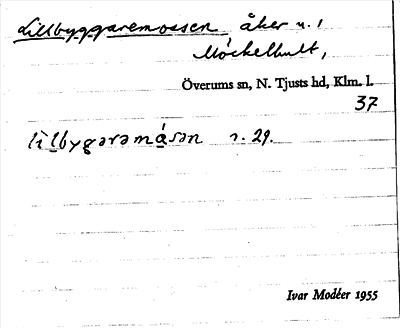 Lillbyggaremossen, åker u. 1
Möckelhult,
Överums sn, N. Tjusts hd, Klm. l.
37
s. 29.
Ivar Modéer 1955